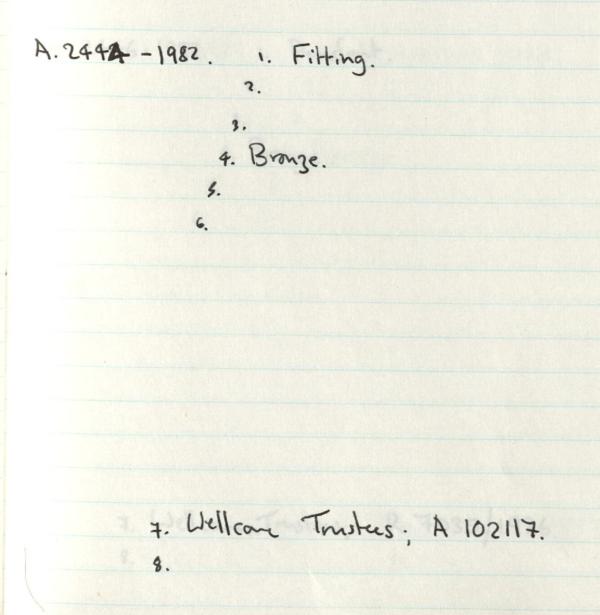 A.2442-1982. 1. Fitting.
2.
3.
4. Bronze.
5.
6.
7. Wellcome Trustees; A 102117.
8.